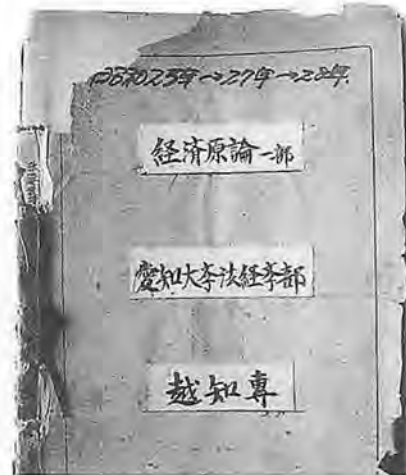 昭和25年→27年→28年.
経済原論一部
愛知大学法経学部
越知専